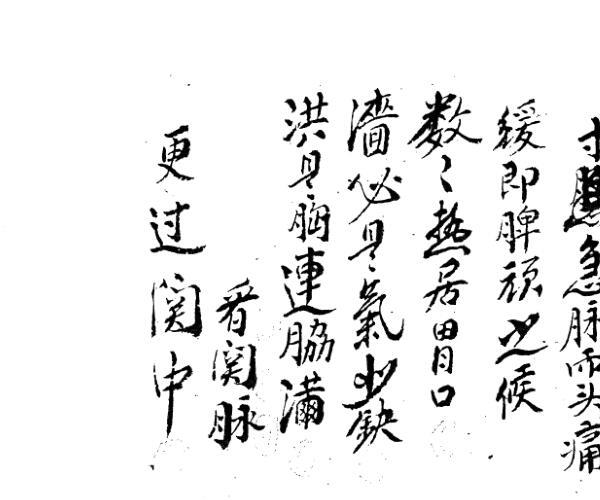 寸急脉而头痛
緩即脾頑之候
数々热居胃口
濇必是氣缺
洪是胸連脇满
看関脉
更过関中